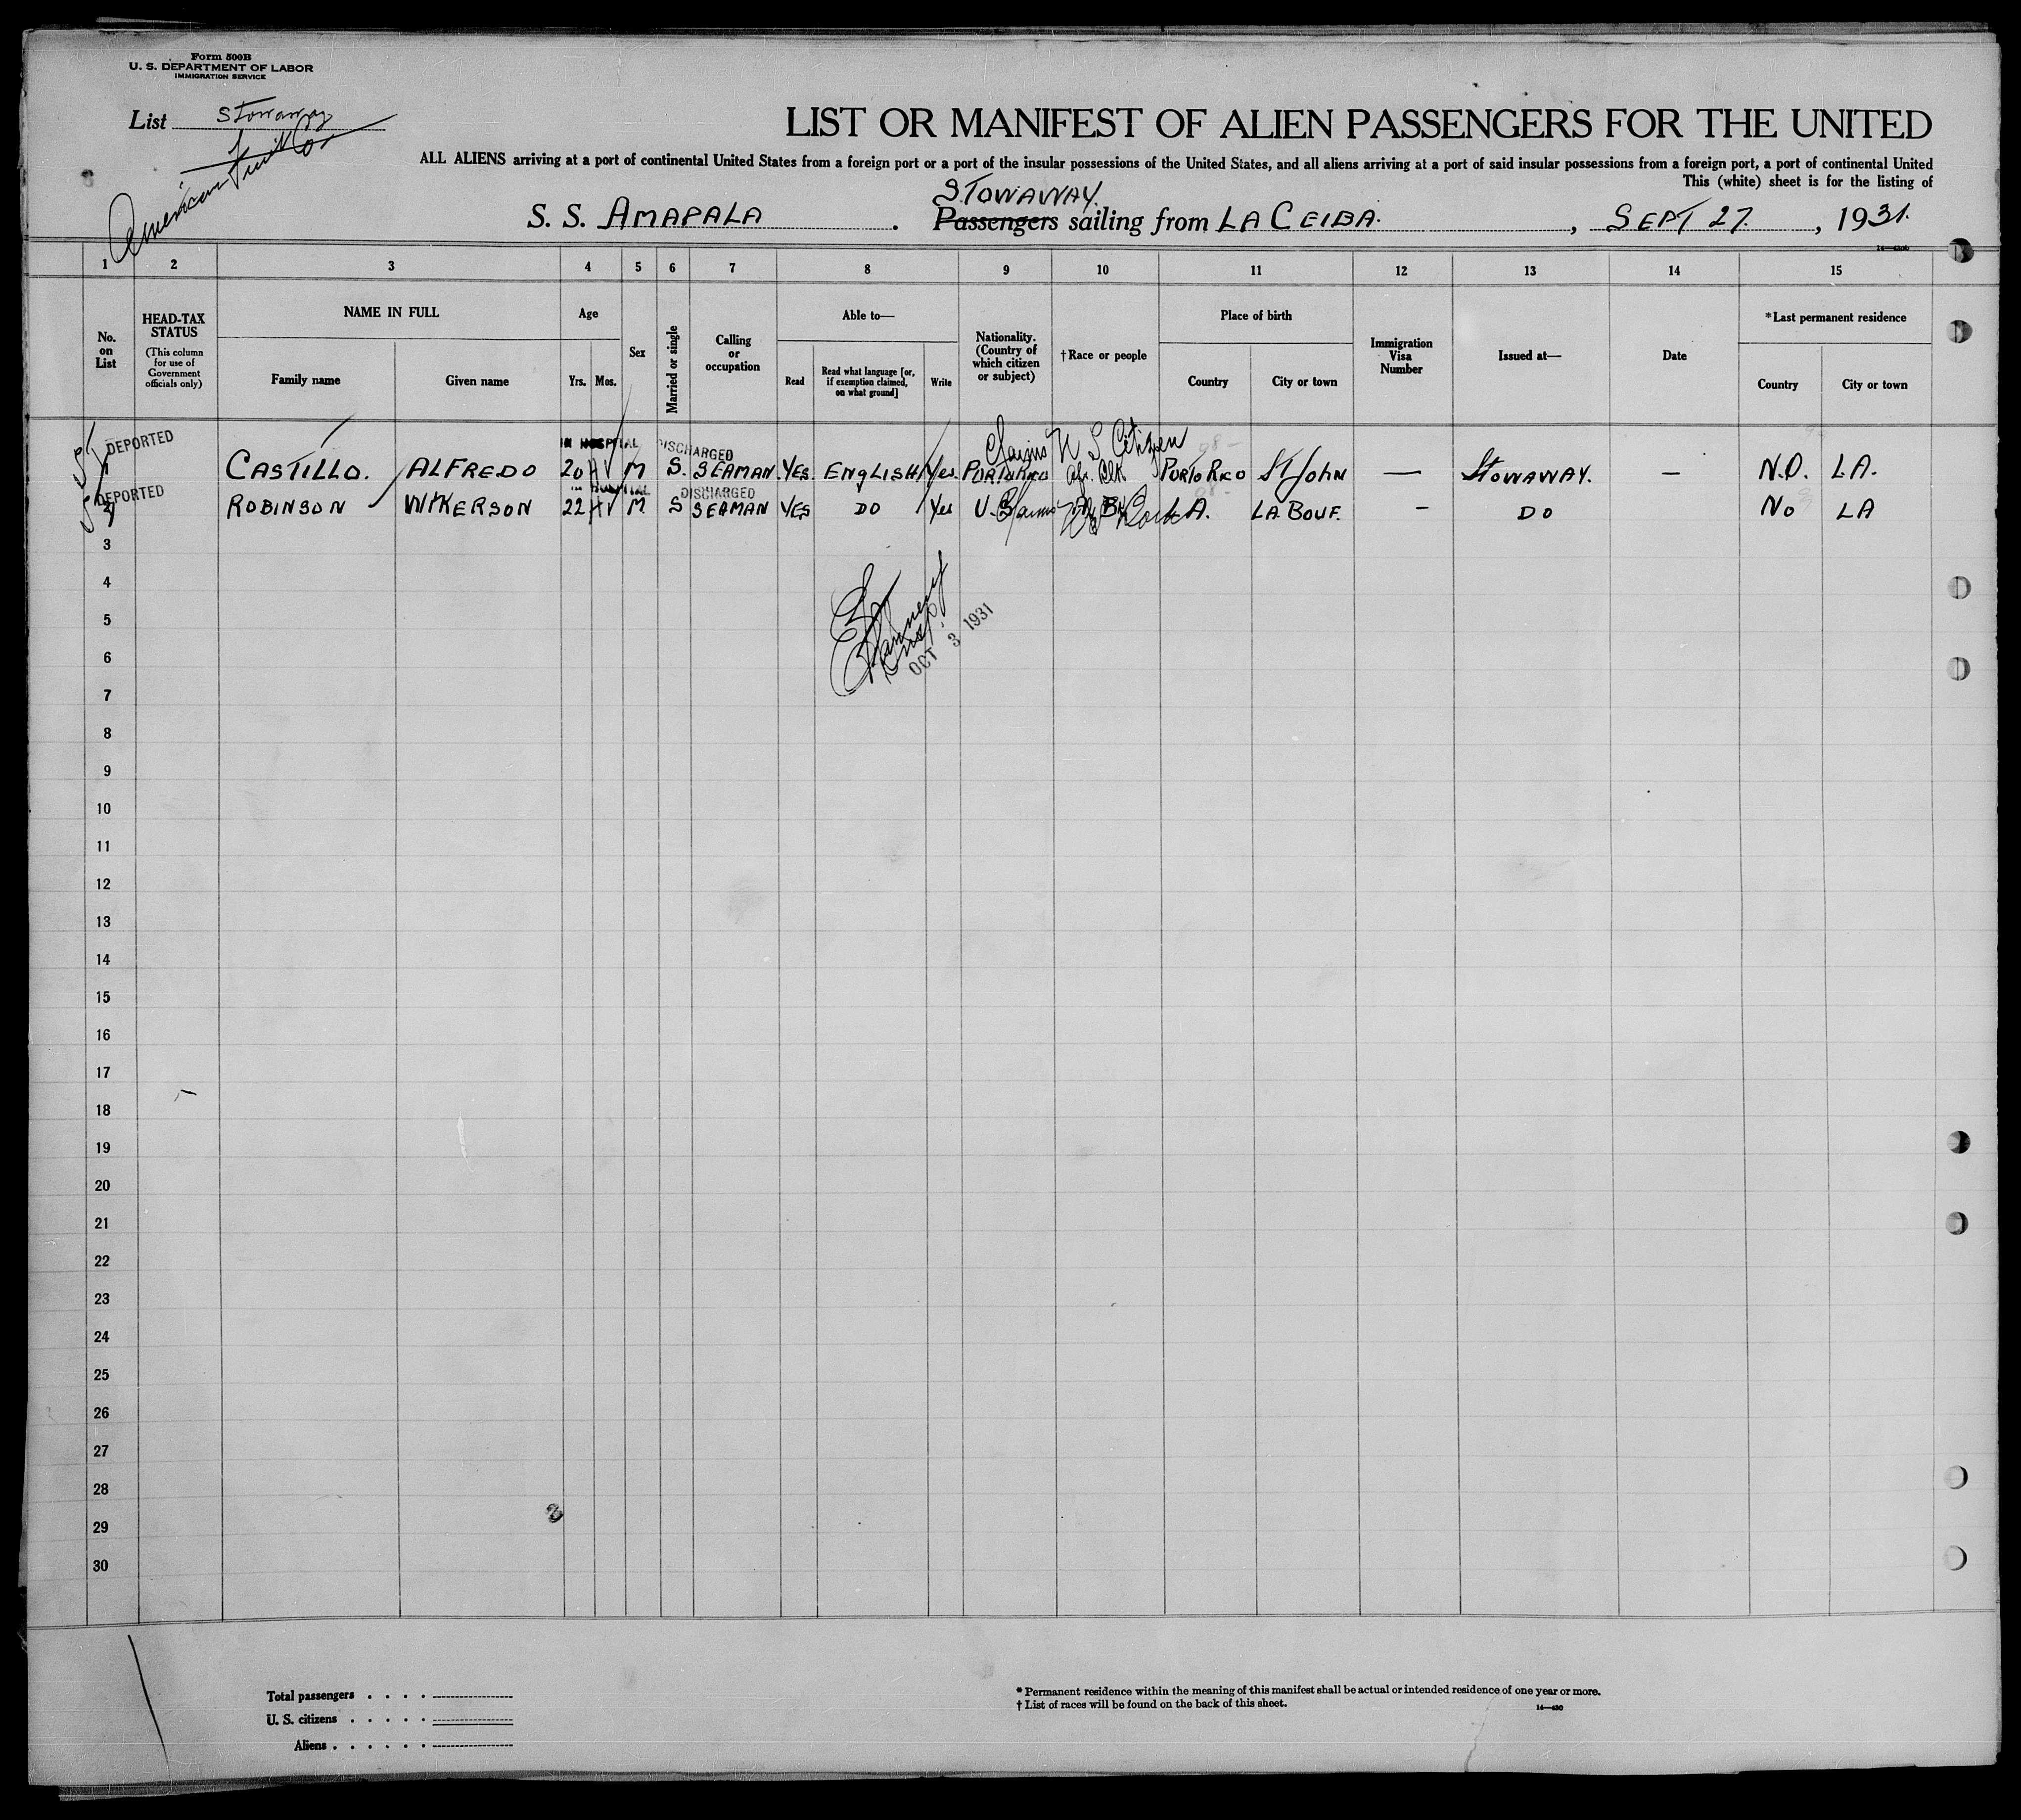 Form 500B
U. S. DEPARTMENT OF LABOR
IMMIGRATION SERVICE
List Stowaway
American Fruit Co
LIST OR MANIFEST OF ALIEN PASSENGERS FOR THE UNITED
ALL ALIENS arriving at a port of continental United States from a foreign port or a port of the insular possessions of the United States, and all aliens arriving at a port of said insular possessions from a foreign port, a port of continental United
This (white) sheet is for the listing of
STOWAWAY.
S. S. AMAPALA . Passengers sailing from LA CEIBA. , SEPT 27. , 1931.
1 2 3 4 5 6 7 8 9 10 11 12 13 14 15
No. on List
HEAD-TAX STATUS
(This column for use of Government officials only)
NAME IN FULL
Family name Given name
Age
Yrs. Mos.
Sex
Married or single
Calling or occupation
Able to—
Read
Read what language [or, if exemption claimed, on what ground]
Write
Nationality. (Country of which citizen or subject)
†Race or people
Place of birth
Country City or town
Immigration Visa Number
Issued at—
Date
*Last permanent residence
Country City or town
DEPORTED IN HOSPITAL DISCHARGED Claims U S Citizen
1 CASTILLO. ALFREDO 20 M S. SEAMAN. YES. ENGLISH Yes. PORTO RICO Af. Blk PORTO RICO St JOHN — STOWAWAY. — N.O. LA.
DEPORTED HOSPITAL DISCHARGED
2 ROBINSON WKERSON 22 M S SEAMAN YES DO Yes U.S. Claims LA. LA BOUF. - DO No LA
3
4
5
6
OCT 3 1931
7
8
9
10
11
12
13
14
15
16
17
18
19
20
21
22
23
24
25
26
27
28
29
30
Total passengers . . . .
U. S. citizens . . . . .
Aliens . . . . . .
* Permanent residence within the meaning of this manifest shall be actual or intended residence of one year or more.
† List of races will be found on the back of this sheet.
14—430